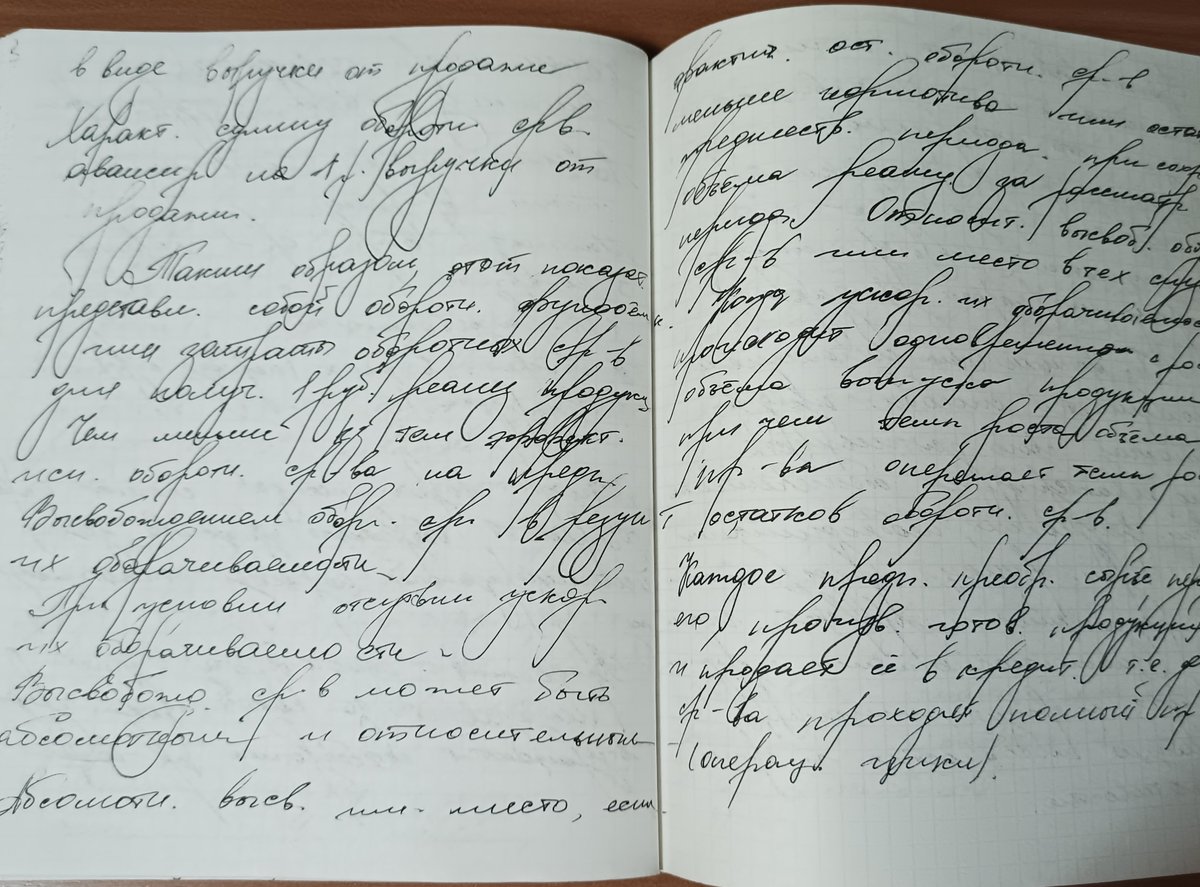 в виде выручки от продажи
Характ. сумму оборотн. ср-в.
авансир на 1 р. выручки от
продажи.
Таким образом, этот показат.
представл. собой оборотн. фондоём
или затраты оборотных ср-в
для получ. 1 руб. реализ продукц
Чем меньше Кз тем эффект.
исп. оборотн. ср-ва на предп.
Высвобождением оборт. ср. в резул
их оборачиваемости
При условии отсутвии ускор
их оборачиваемости
Высвобожд. ср-в может быть
абсолютным и относительным
Абсолютн. высв. им. место, если
фактич. ост. оборотн. ср-в
меньше норматива или оста
предшеств. периода. при сохр
объёма реализ за рассматр
период. Относит. высвоб. об
ср-в или место в тех слу
когда ускор. их оборачиваемос
происходит одновременно с ро
объёма выпуска продукции
при чем темп роста объёма
пр-ва опережает темп ро
остатков оборотн. ср-в.
Каждое предп. преобр. сырьё пер
его произв. готов. продукции
и продает её в кредит. т.е. д
ср-ва проходят полный
(операц. цикл).